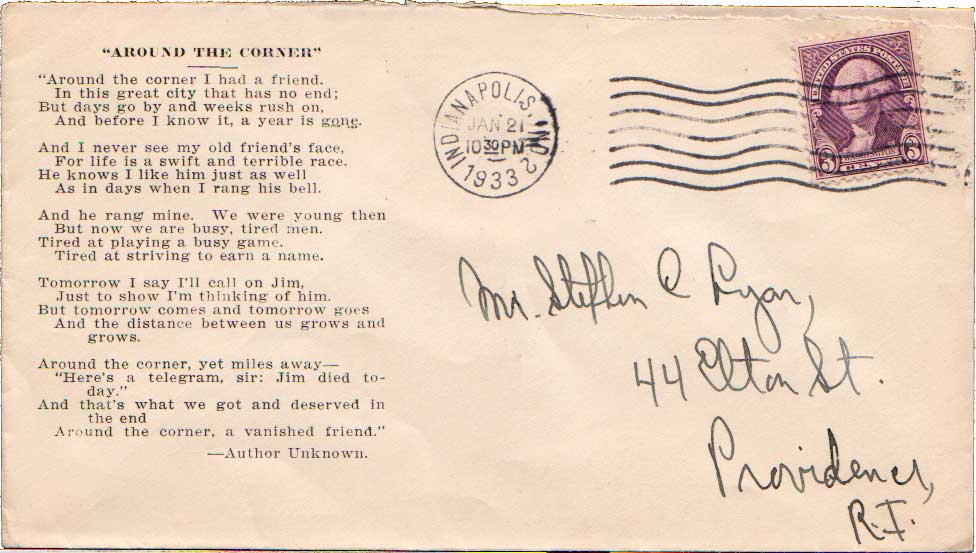 "AROUND THE CORNER"
"Around the corner I had a friend.
In this great city that has no end;
But days go by and weeks rush on,
And before I know it, a year is gone.
And I never see my old friend's face,
For life is a swift and terrible race.
He knows I like him just as well
As in days when I rang his bell.
And he rang mine. We were young then
But now we are busy, tired men.
Tired at playing a busy game.
Tired at striving to earn a name.
Tomorrow I say I'll call on Jim,
Just to show I'm thinking of him.
But tomorrow comes and tomorrow goes
And the distance between us grows and
grows.
Around the corner, yet miles away—
"Here's a telegram, sir: Jim died to-
day."
And that's what we got and deserved in
the end
Around the corner, a vanished friend."
—Author Unknown.
INDIANAPOLIS, IND. 2
JAN 21
10 30 PM
1933
UNITED STATES POSTAGE
3 WASHINGTON 3
Mr. Stephen C Lyon,
44 Elton St.
Providence,
R.I.